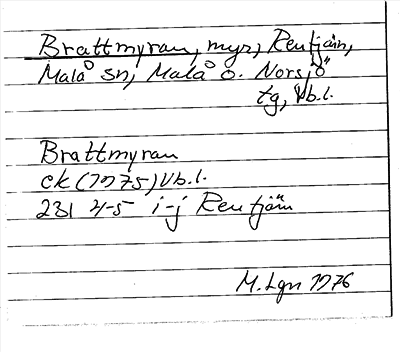 Brattmyran, myr, Rentjärn,
Malå sn, Malå o. Norsjö
tg, Vb.l.
Brattmyran
ek (1975) Vb.l.
23I 4-5 i-j Rentjärn
M. Lgn 1976